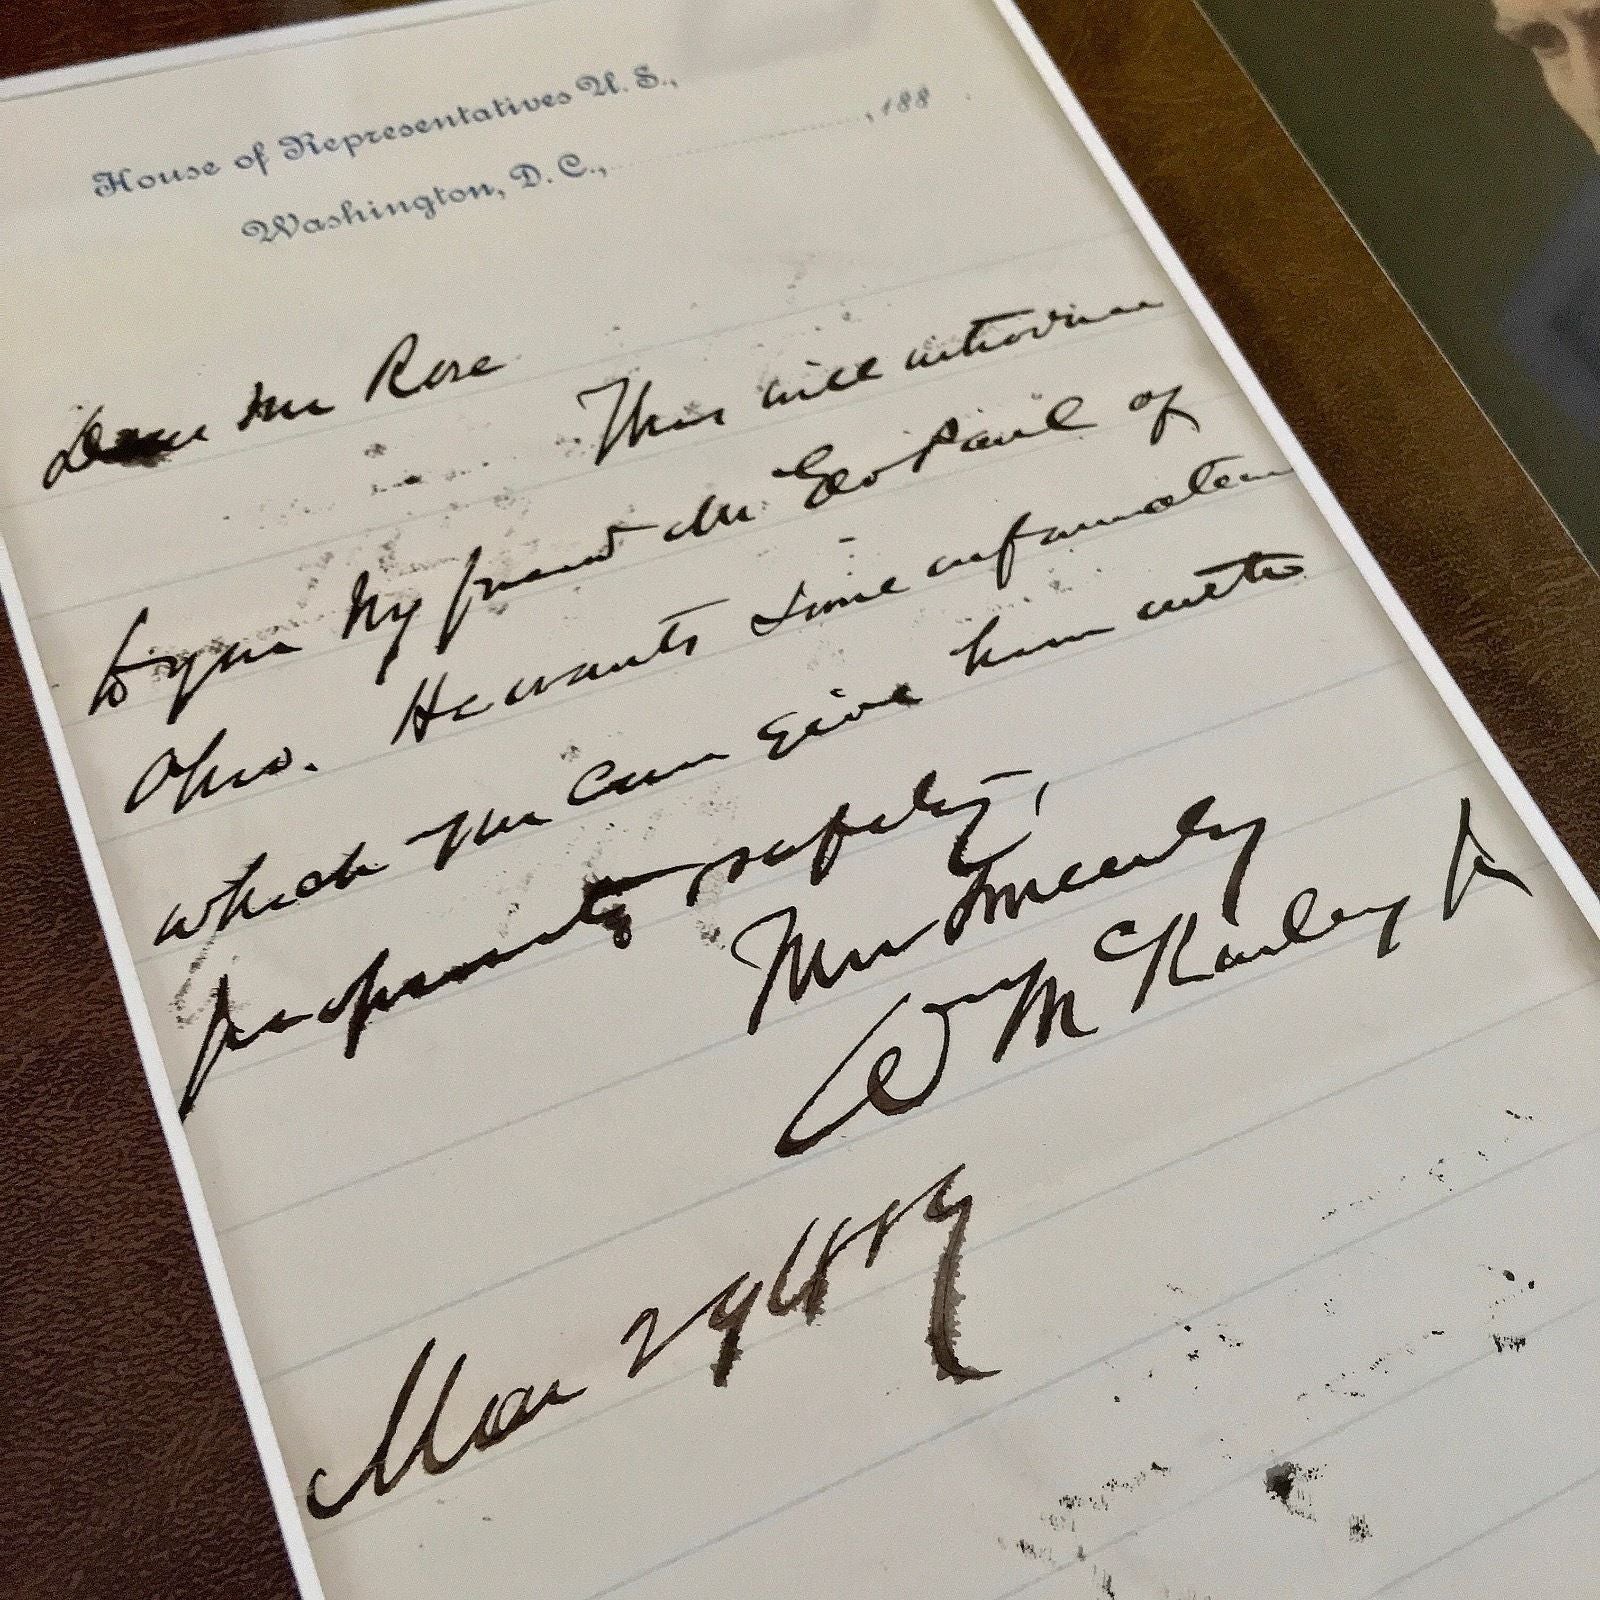 House of Representatives U. S.,
Washington, D. C., , 188
Dear Mr Rose
This will introduce
to you My friend Mr Geo Paul of
Ohio. He wants some information
which You can give him with
perfect safety,
Yours Sincerely
Wm McKinley Jr
Mar 29